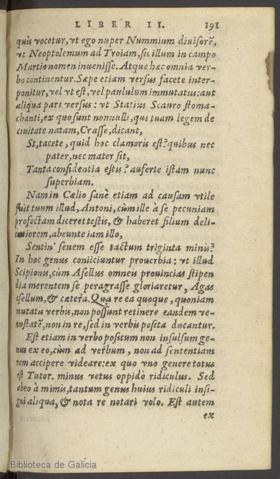 LIBER II. 191
quis vocetur, vt ego nuper Nummium diuisorē,
vt Neoptolemum ad Troiam, sic illum in campo
Martio nomen inuenisse. Atque hæc omnia ver-
bo continentur. Sæpe etiam versus facetè inter-
ponitur, vel vt est, vel paululum immutatus: aut
aliqua pars versus: vt Statius Scauro stoma-
chanti, ex quo sunt nonnulli, qui tuam legem de
ciuitate natam, Crasse, dicant,
St, tacete, quid hoc clamoris est? quibus nec
pater, nec mater sit,
Tanta confidentia estis? auferte istam nunc
superbiam.
Nam in Cælio sanè etiam ad causam vtile
fuit tuum illud, Antoni, cùm ille à se pecuniam
profectam diceret testis, & haberet filium deli-
catiorem, abeunte iam illo,
Sentin' senem esse tactum triginta minis?
In hoc genus coniiciuntur prouerbia: vt illud
Scipionis, cùm Asellus omneis prouincias stipen
dia merentem se peragrasse gloriaretur, Agas
asellum, & cætera. Qua re ea quoque, quoniam
mutatis verbis, non possunt retinere eandem ve-
nustatē, non in re, sed in verbis posita ducantur.
Est etiam in verbo positum non insulsum ge-
nus ex eo, cùm ad verbum, non ad sententiam
rem accipere videare: ex quo vno genere totus
est Tutor. minus vetus oppidò ridiculus. Sed
abeo à mimis, tantum genus huius ridiculi insi-
gni aliqua, & nota re notari volo. Est autem
ex
Biblioteca de Galicia